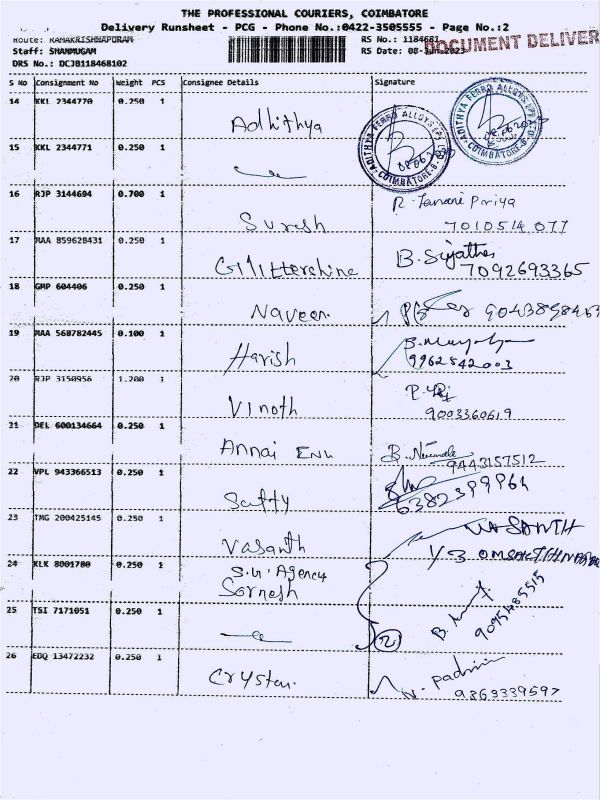 THE PROFESSIONAL COURIERS, COIMBATORE
Delivery Runsheet - PCG - Phone No.:0422-3505555 - Page No.:2
Route: RAMAKRISHNAPURAM
Staff: SHANMUGAM
DRS No.: DCJB118468102
RS No.: 1184681
RS Date: 08-
DOCUMENT DELIVER
S No Consignment No Weight PCS Consignee Details Signature
14 KKL 2344770 0.250 1 Adhithya
ADITHYA FERRO ALLOYS (P) LTD
COIMBATORE-6
ADITHYA FERRO ALLOYS (P) LTD
COIMBATORE-6
15 KKL 2344771 0.250 1
16 RJP 3144694 0.700 1 Suresh R. Priya
7010514077
17 MAA 859628431 0.250 1 Glittershine B. Sujatha
7092693365
18 GMP 604406 0.250 1 Naveen
19 MAA 568782445 0.100 1 Harish
9962842003
20 RJP 3150956 1.200 1 Vinoth
9003360619
21 DEL 600134664 0.250 1 Annai
9443157512
22 VPL 943366513 0.250 1
23 TMG 200425145 0.250 1 Vasanth VASANTH
24 KLK 8001780 0.250 1 S.N. Agency
25 TSI 7171051 0.250 1
9095485515
2
26 EDQ 13472232 0.250 1 Crysten. N. padmini
9363339597